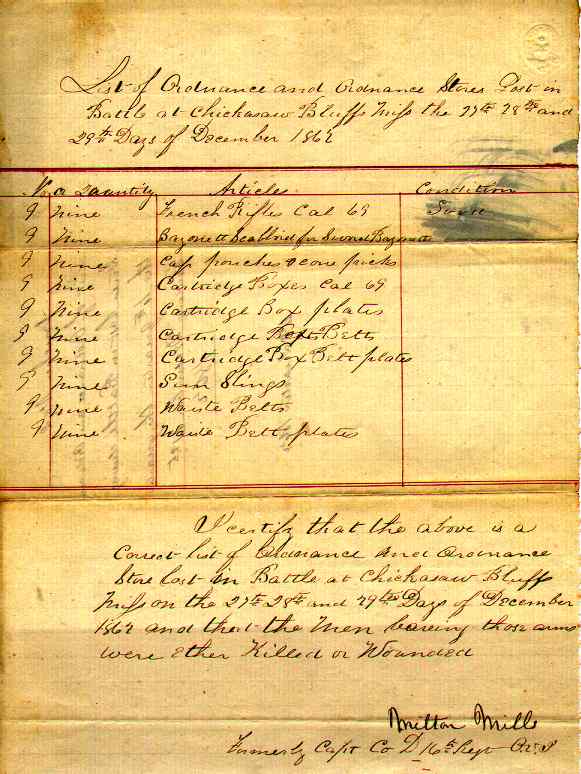 List of Ordnance and Ordnance Stores Lost in
Battle at Chickasaw Bluffs Miss the 27th 28th and
29th Days of December 1862
No. Quantity Articles Condition
9 Nine French Rifles Cal 69 Good
9 Nine Bayonett Scabbrid for Sword Bayonett
9 Nine Cap pouches & cone picks
9 Nine Cartridge Boxes Cal 69
9 Nine Cartridge Box plates
9 Nine Cartridge Belts
9 Nine Cartridge Box Belt plates
9 Nine Gun Slings
9 Nine Waite Belts
9 Nine Waite Belt plates
I certify that the above is a
Correct list of Ordnance and Ordnance
Store lost in Battle at Chickasaw Bluff
Miss on the 27th 28th and 29th Days of December
1862 and that the Men bareing those arms
were Ether Killed or Wounded
Milton Mills
Formerly Capt Co D 16th Regt O.V.I